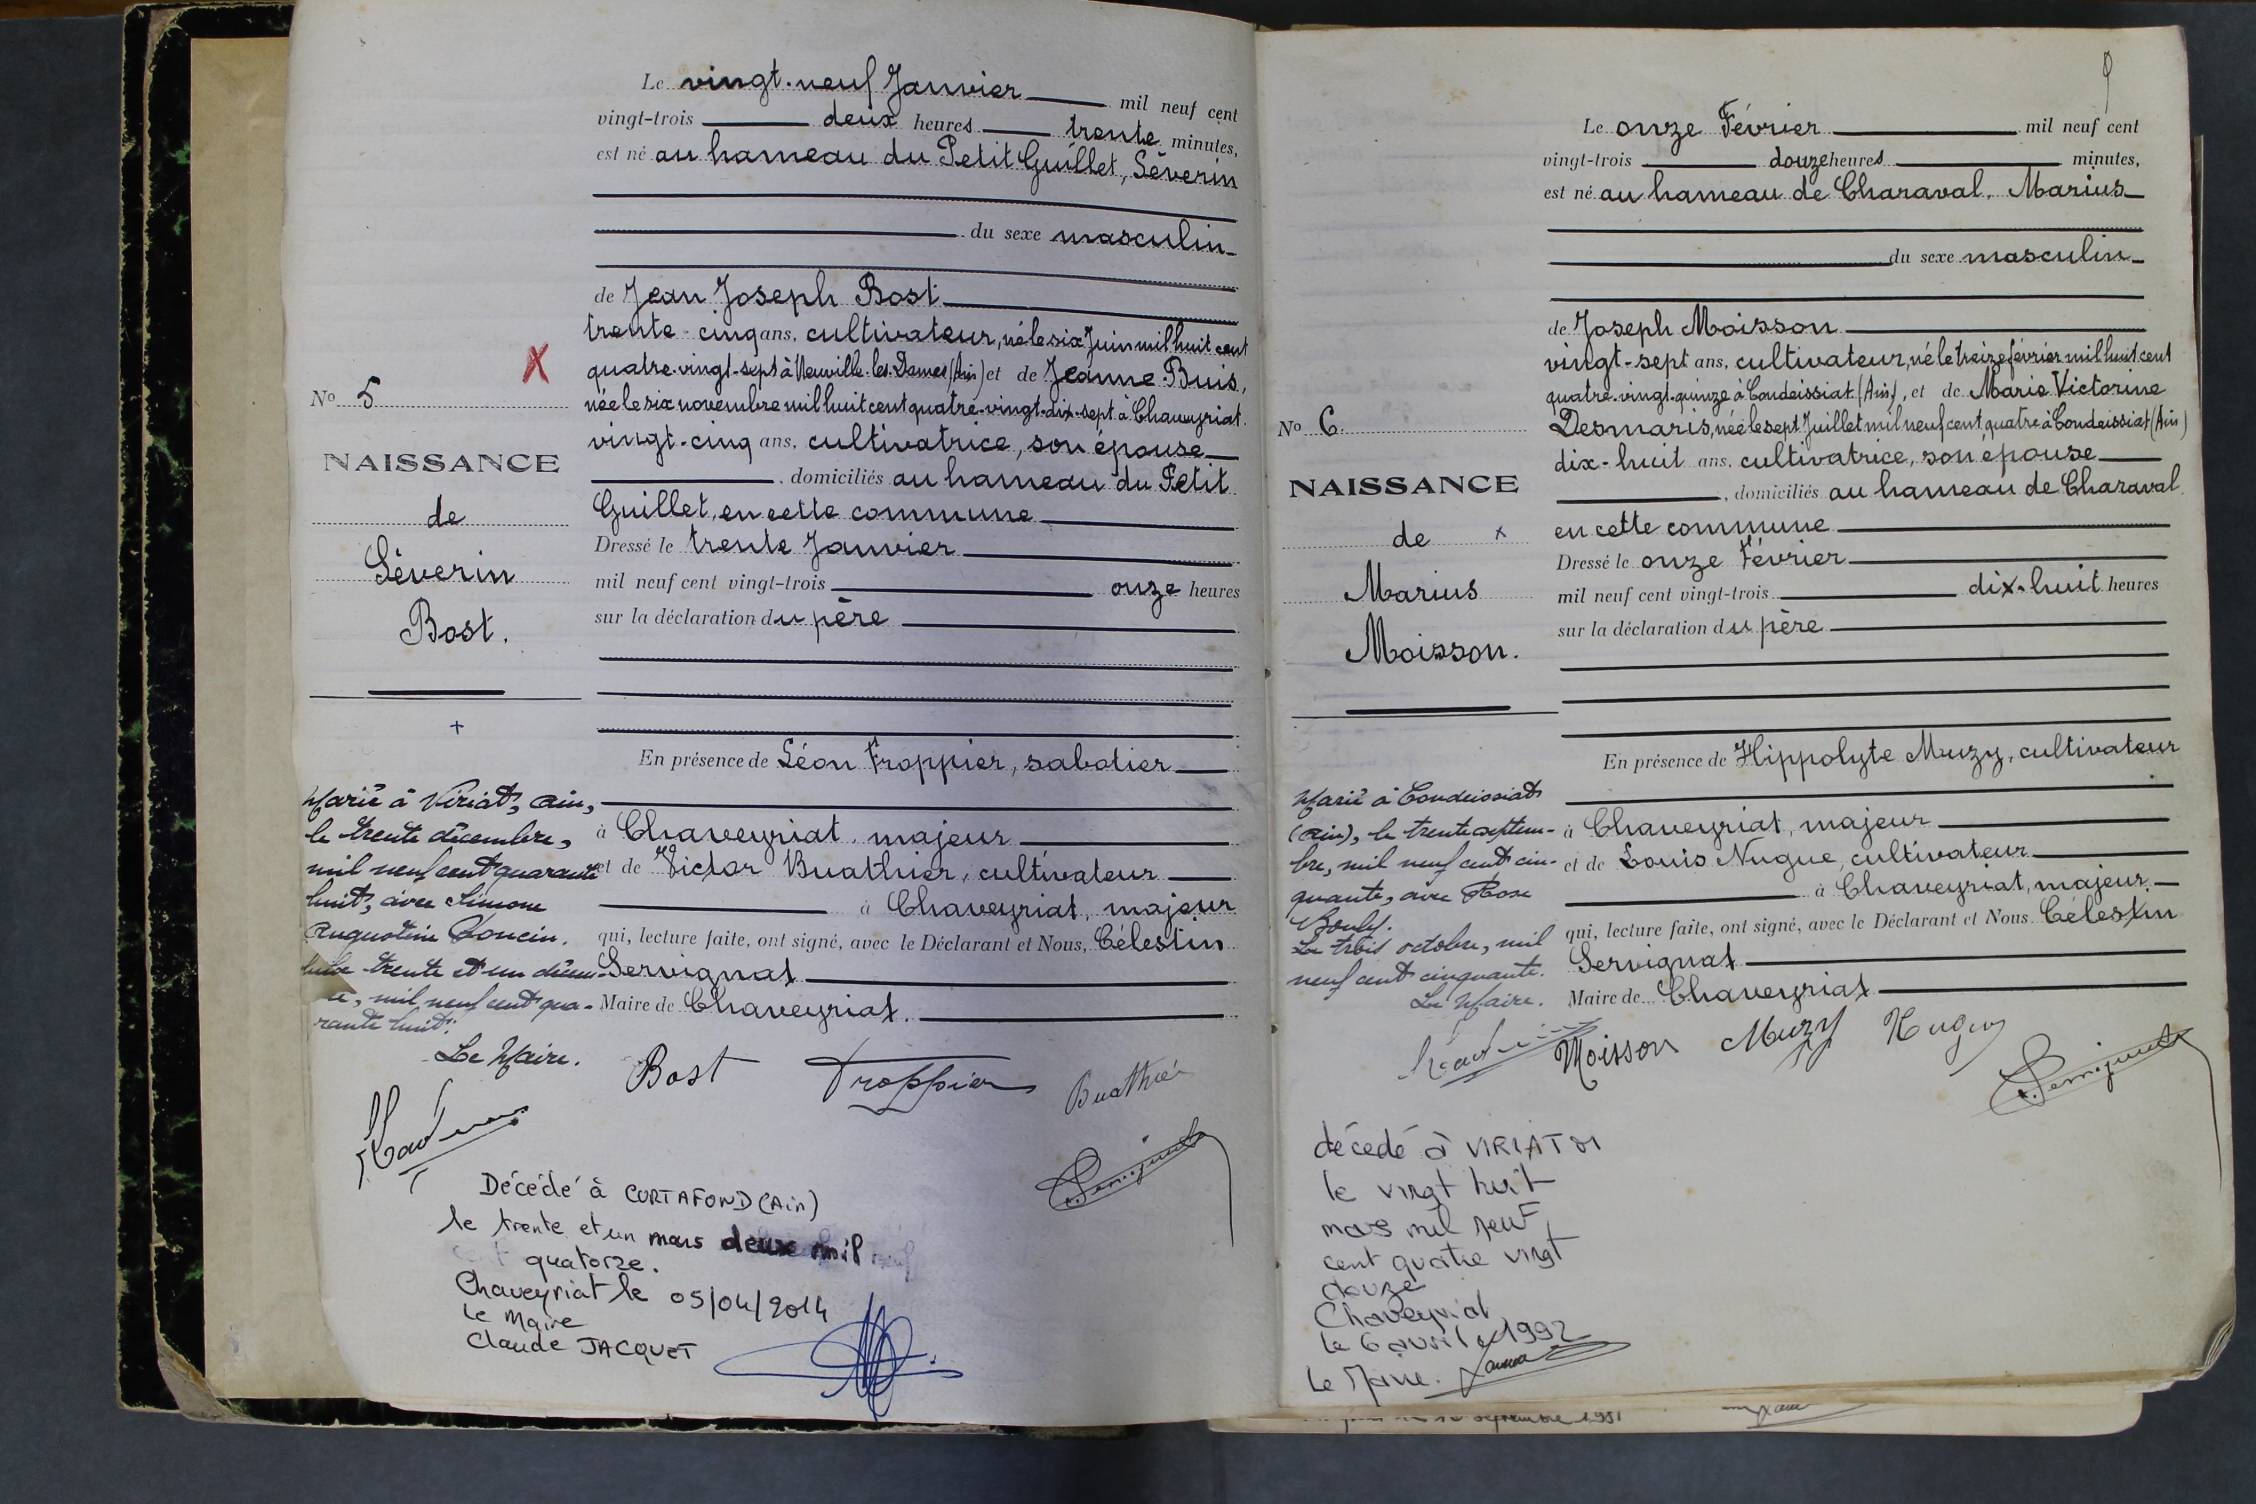 Le vingt-neuf Janvier mil neuf cent
vingt-trois deux heures trente minutes,
est né au hameau du Petit Guillet, Séverin
du sexe masculin
de Jean Joseph Bost
trente-cinq ans, cultivateur, né le six Juin mil huit cent
quatre-vingt-sept à Neuville-les-Dames (Ain) et de Jeanne Buis,
née le six novembre mil huit cent quatre-vingt-dix-sept à Chaveyriat.
vingt-cinq ans, cultivatrice, son épouse
, domiciliés au hameau du Petit
Guillet, en cette commune
Dressé le trente Janvier
mil neuf cent vingt-trois onze heures
sur la déclaration du père
En présence de Léon Froppier, sabotier
à Chaveyriat, majeur
et de Victor Buathier, cultivateur
à Chaveyriat, majeur
qui, lecture faite, ont signé, avec le Déclarant et Nous, Célestin
Servignat
Maire de Chaveyriat.
Bost Froppier Buathier
X
No 5
NAISSANCE
de
Séverin
Bost.
+
Marié à Viriat, Ain,
le trente décembre,
mil neuf cent quarante
huit, avec Simone
Augustine Poncin.
trente et un décem-
mil neuf cent qua-
rante huit.
Le Maire.
Décédé à CURTAFOND (Ain)
le trente et un mars deux mil
quatorze.
Chaveyriat le 05/04/2014
Le Maire
Claude JACQUET
9
Le onze Février mil neuf cent
vingt-trois douze heures minutes,
est né au hameau de Charaval, Marius
du sexe masculin
de Joseph Moisson
vingt-sept ans, cultivateur, né le treize février mil huit cent
quatre-vingt-quinze à Condeissiat (Ain), et de Marie Victorine
Desmaris, née le sept Juillet mil neuf cent quatre à Condeissiat (Ain)
dix-huit ans, cultivatrice, son épouse
, domiciliés au hameau de Charaval
en cette commune
Dressé le onze Février
mil neuf cent vingt-trois dix-huit heures
sur la déclaration du père
En présence de Hippolyte Muzy, cultivateur
à Chaveyriat, majeur
et de Louis Nugue, cultivateur
à Chaveyriat, majeur
qui, lecture faite, ont signé, avec le Déclarant et Nous Célestin
Servignat
Maire de Chaveyriat
Moisson Muzy Nugue
No 6
NAISSANCE
de x
Marius
Moisson.
Marié à Condeissiat
(Ain), le trente septem-
bre, mil neuf cent cin-
quante, avec Rose
Bouly.
Le trois octobre, mil
neuf cent cinquante.
Le Maire.
décédé à VIRIAT 01
le vingt huit
mars mil neuf
cent quatre vingt
douze
Chaveyriat
le 6 avril 1992
Le Maire.
septembre 1981